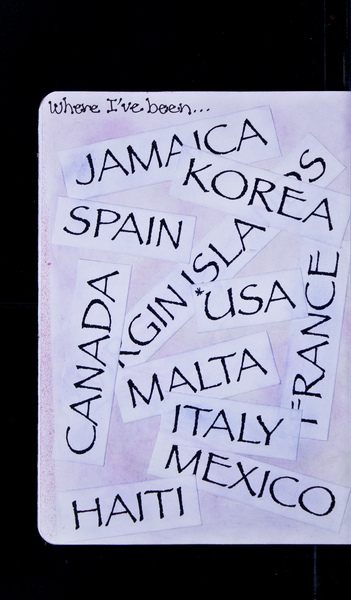 where I've been...
JAMAICA
KOREA
SPAIN
*USA
CANADA
FRANCE
MALTA
ITALY
MEXICO
HAITI